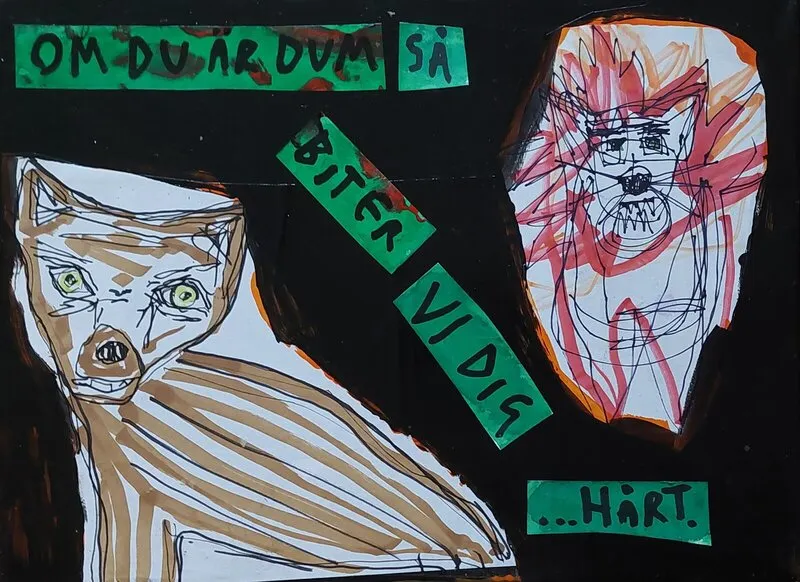 OM DU ÄR DUM SÅ
BITER
VI DIG
...HÅRT.